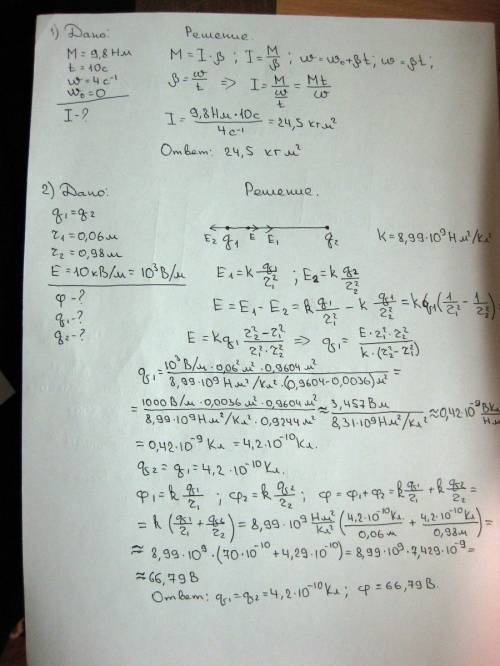 1) Дано:
M = 9,8 Нм
t = 10с
ω = 4 с⁻¹
ω₀ = 0
I - ?
Решение.
M = I·β ; I = M/β ; ω = ω₀ + βt ; ω = βt ;
β = ω/t => I = M/(ω/t) = Mt/ω
I = 9,8 Нм · 10с / 4 с⁻¹ = 24,5 кг м²
Ответ: 24,5 кг м²
2) Дано:
q₁ = q₂
r₁ = 0,06м
r₂ = 0,98м
E = 10 кВ/м = 10³ В/м
φ - ?
q₁ - ?
q₂ - ?
Решение.
E₂ q₁ E E₁ q₂
k = 8,99·10⁹ Н м²/Кл²
E₁ = k q₁/r₁² ; E₂ = k q₂/r₂²
E = E₁ - E₂ = k q₁/r₁² - k q₁/r₂² = k q₁ (1/r₁² - 1/r₂²)
E = kq₁ (r₂² - r₁²)/(r₁²·r₂²) => q₁ = E·r₁²·r₂² / k·(r₂² - r₁²)
q₁ = 10³ В/м · 0,06² м² · 0,9604 м² / 8,99·10⁹ Нм²/Кл² · (0,9604 - 0,0036) м² =
= 1000 В/м · 0,0036 м² · 0,9604 м² / 8,99·10⁹ Нм²/Кл² · 0,9244 м² ≈ 3,457 Вм / 8,31·10⁹ Нм²/Кл² ≈ 0,42·10⁻⁹ ВКл/Нм
= 0,42·10⁻⁹ Кл = 4,2·10⁻¹⁰ Кл.
q₂ = q₁ = 4,2·10⁻¹⁰ Кл.
φ₁ = k q₁/r₁ ; φ₂ = k q₂/r₂ ; φ = φ₁ + φ₂ = k q₁/r₁ + k q₂/r₂ =
= k (q₁/r₁ + q₂/r₂) = 8,99·10⁹ Нм²/Кл² (4,2·10⁻¹⁰ Кл/0,06 м + 4,2·10⁻¹⁰ Кл/0,98 м) =
≈ 8,99·10⁹ · (70·10⁻¹⁰ + 4,29·10⁻¹⁰) = 8,99·10⁹ · 7,429·10⁻⁹ =
≈ 66,79 В
Ответ: q₁ = q₂ = 4,2·10⁻¹⁰ Кл ; φ = 66,79 В.